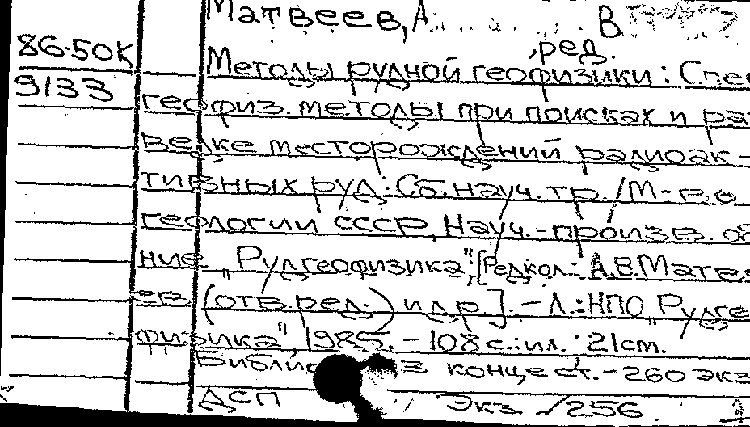 Матвеев, А. В
86-50К , ред.
Методы рудной геофизики : Спе
9133 геофиз. методы при поисках и ра
ведке месторождений радиоак-
тивных руд : Сб. науч. тр. / М-во
геологии СССР, Науч.-произв. об
ние „Рудгеофизика"; [Редкол.: А.В.Матве
ев (отв. ред.) и др.]. - Л.: НПО „Рудге
физика", 1985. - 108 с.: ил.; 21 cm.
в конце ст. - 260 экз
ДСП Экз √256